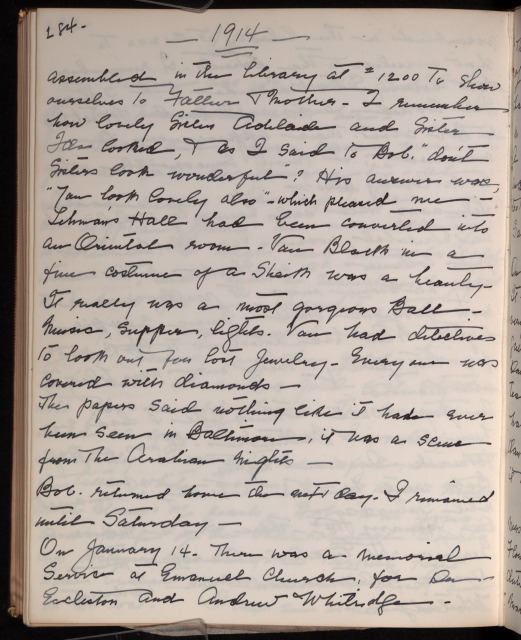 184.
— 1914 —
assembled in the Library at 12.00 To show
ourselves to Father & Mother - I remember
how lovely Sister Adelaide and Sister
Ida looked, & as I said to Bob. "don't
Sisters look wonderful"? His answer was,
"You look lovely also" - which pleased me -
Lehmans Hall had been converted into
an Oriental room - Van Black in a
fine costume of a Sheik was a beauty -
It really was a most gorgeous Ball -
Music, Supper, lights. Van had detectives
to look out for lost Jewelry - Everyone was
covered with diamonds -
The papers said nothing like it had ever
been seen in Baltimore, it was a scene
from The Arabian Nights -
Bob. returned home the next day. I remained
until Saturday -
On January 14. There was a memorial
Service at Emanuel Church, for Dr
Eccleston and Andrew Whitridge -